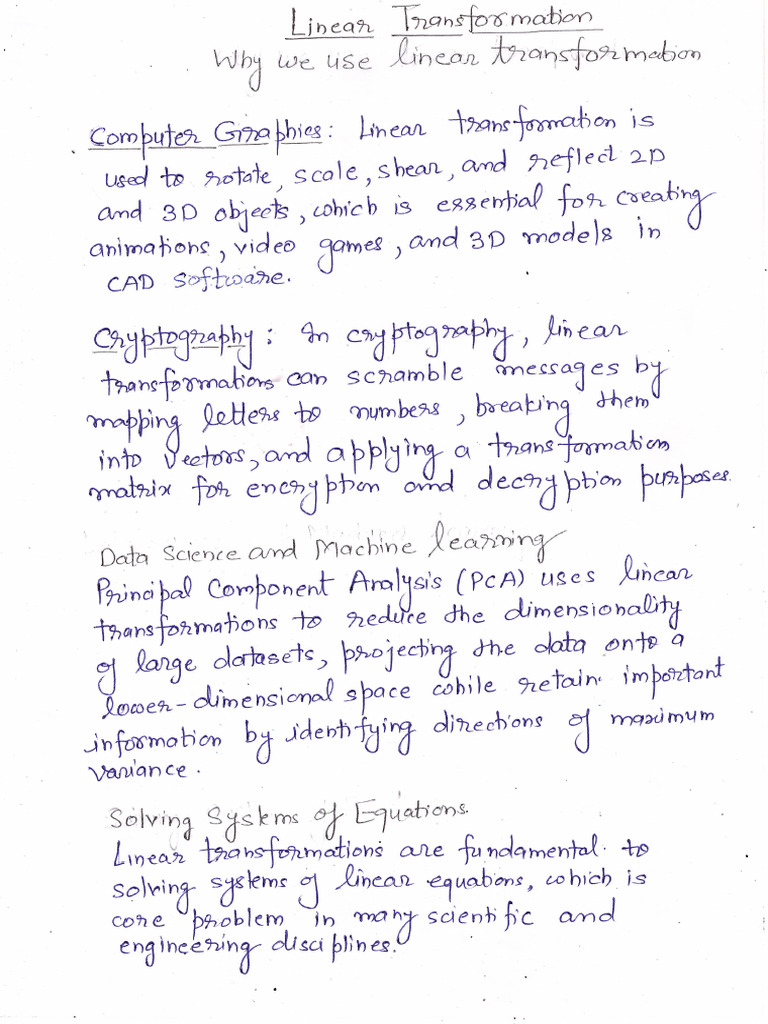 Linear Transformation
Why we use linear transformation
Computer Graphics: Linear transformation is
used to rotate, scale, shear, and reflect 2D
and 3D objects, which is essential for creating
animations, video games, and 3D models in
CAD software.
Cryptography: In cryptography, linear
transformations can scramble messages by
mapping letters to numbers, breaking them
into vectors, and applying a transformation
matrix for encryption and decryption purposes.
Data Science and Machine learning
Principal Component Analysis (PCA) uses linear
transformations to reduce the dimensionality
of large datasets, projecting the data onto a
lower-dimensional space while retain important
information by identifying directions of maximum
variance.
Solving Systems of Equations.
Linear transformations are fundamental to
solving systems of linear equations, which is
core problem in many scientific and
engineering disciplines.